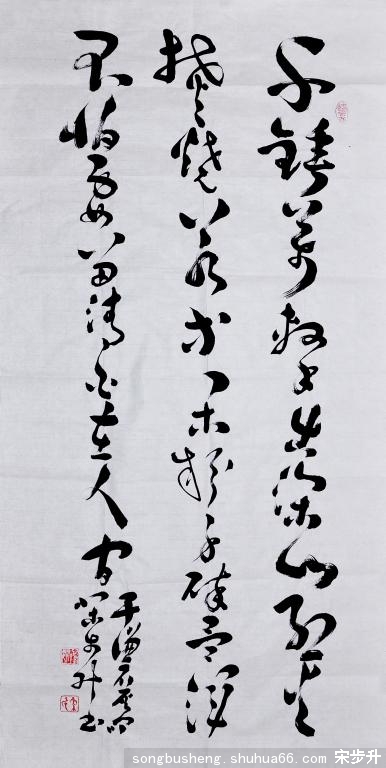 千錘萬擊出深山烈火
焚燒若等閑粉身碎骨渾
不怕要留清白在人間
于謙石灰吟
宋步升书
songbusheng.shuhua66.com 宋步升